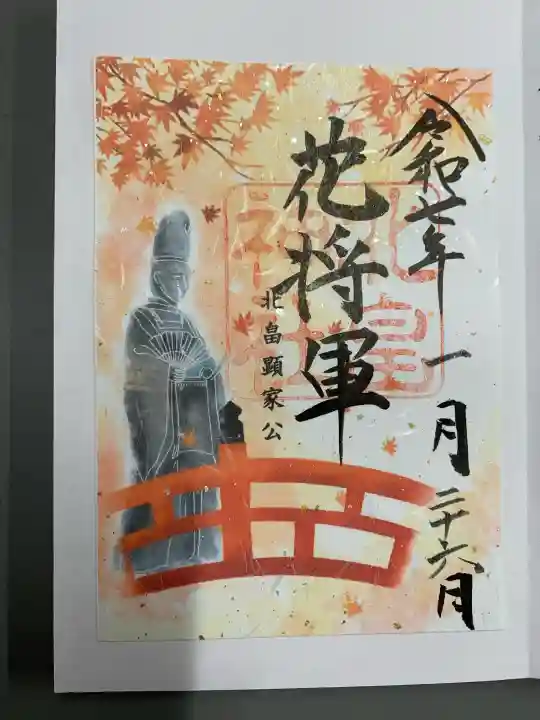 令和七年 一月二十六日
花将軍
北畠顕家公
北畠
神社